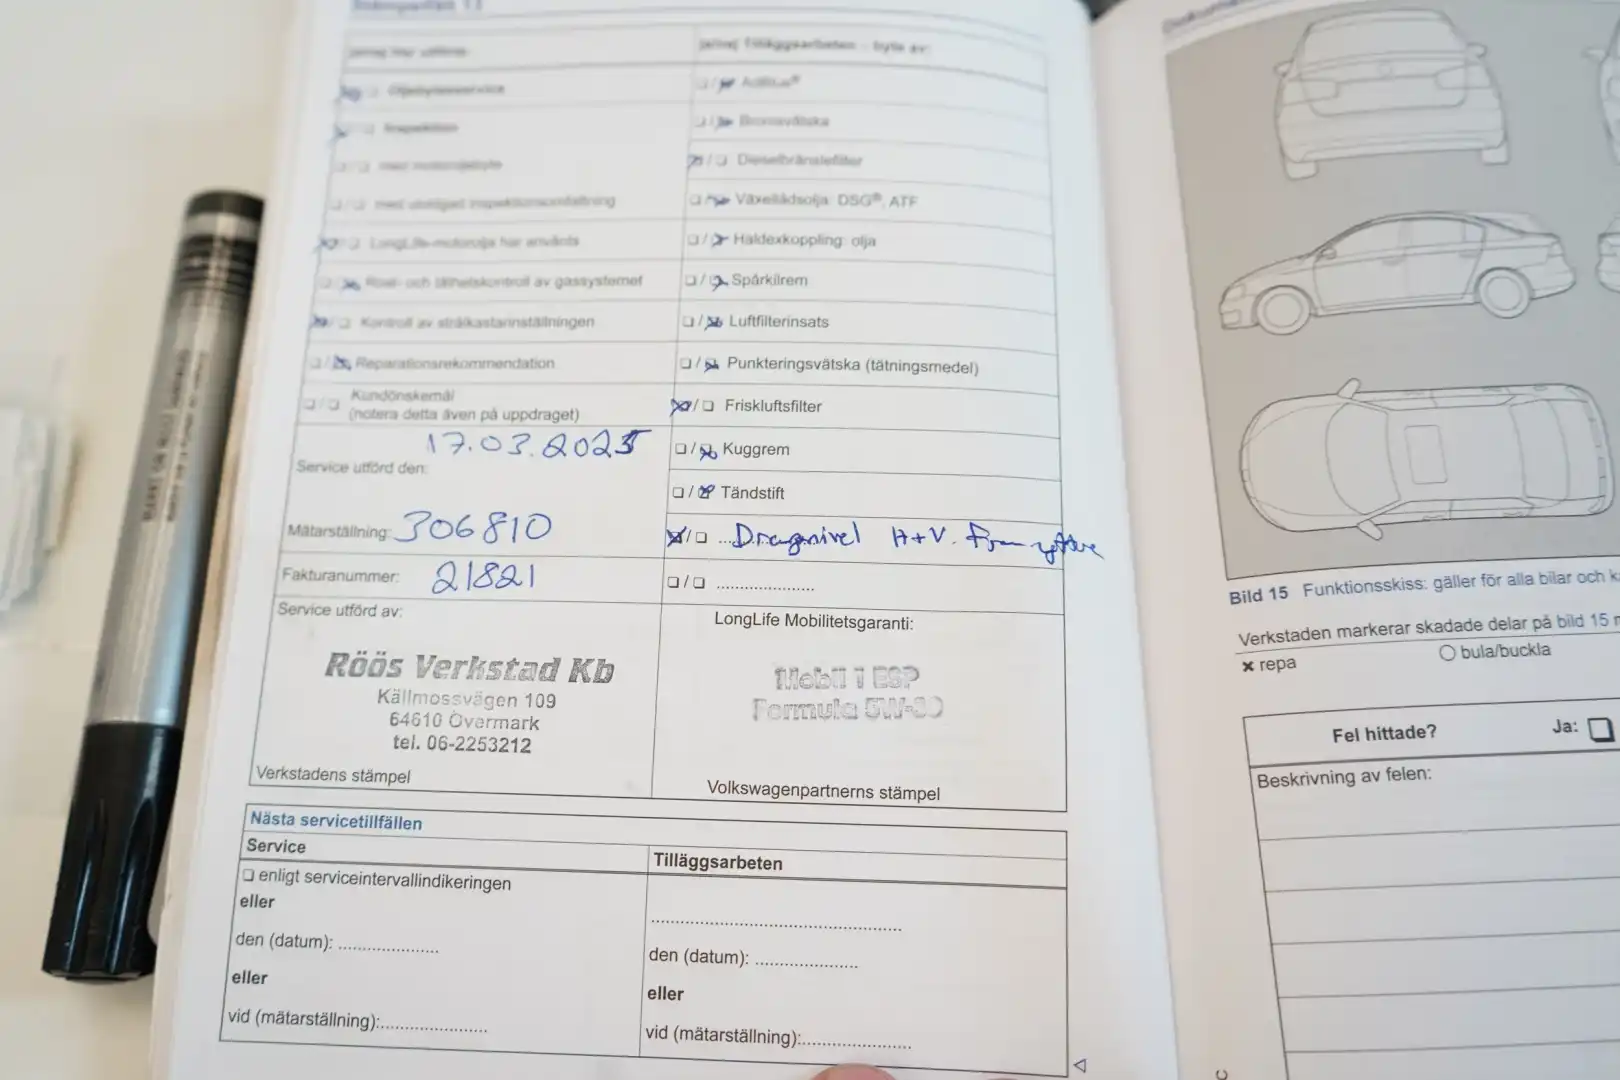 Stämpelfält 13
[ja/nej] har utförts:
[ja/nej] Tilläggsarbeten – byte av:
Oljebytesservice
AdBlue®
Inspektion
Bromsvätska
med motoroljebyte
Dieselbränslefilter
med utvidgad inspektionsomfattning
Växellådsolja: DSG®, ATF
LongLife-motorolja har använts
Haldexkoppling: olja
Rost- och täthetskontroll av gassystemet
Spårkilrem
Kontroll av strålkastarinställningen
Luftfilterinsats
Reparationsrekommendation
Punkteringsvätska (tätningsmedel)
Kundönskemål
(notera detta även på uppdraget)
Friskluftsfilter
Service utförd den: 17.03.2025
Kuggrem
Tändstift
Mätarställning: 306810
H+V.
Fakturanummer: 21821
Service utförd av:
LongLife Mobilitetsgaranti:
Röös Verkstad Kb
Källmossvägen 109
64610 Övermark
tel. 06-2253212
Mobil 1 ESP
Formula 5W-30
Verkstadens stämpel
Volkswagenpartnerns stämpel
Nästa servicetillfällen
Service
Tilläggsarbeten
enligt serviceintervallindikeringen
eller
den (datum): ....................
den (datum): ....................
eller
eller
vid (mätarställning):.....................
vid (mätarställning):.....................
Bild 15 Funktionsskiss: gäller för alla bilar och
Verkstaden markerar skadade delar på bild 15
× repa
○ bula/buckla
Fel hittade?
Ja: ❏
Beskrivning av felen: